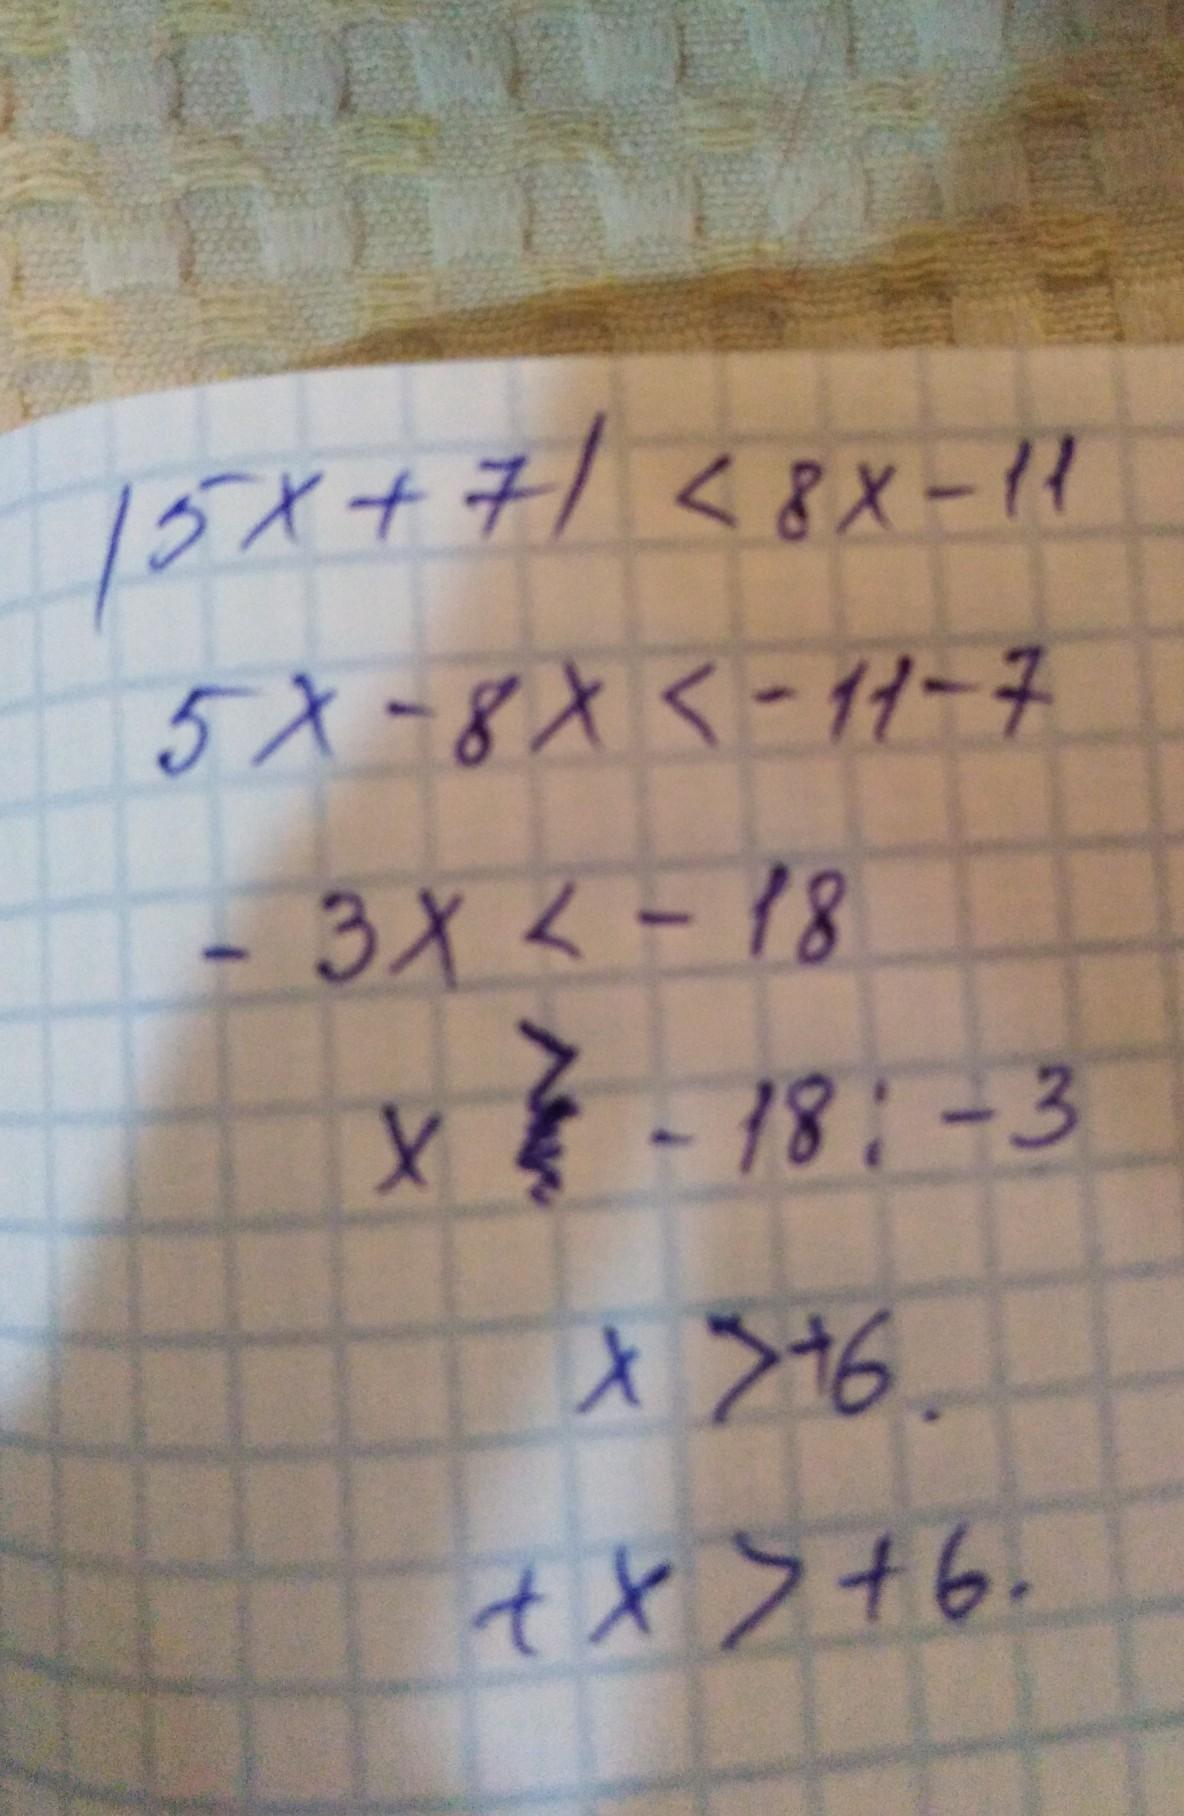 |5x + 7| < 8x - 11
5x - 8x < - 11 - 7
- 3x < - 18
x > - 18 : - 3
x > +6.
+ x > + 6.